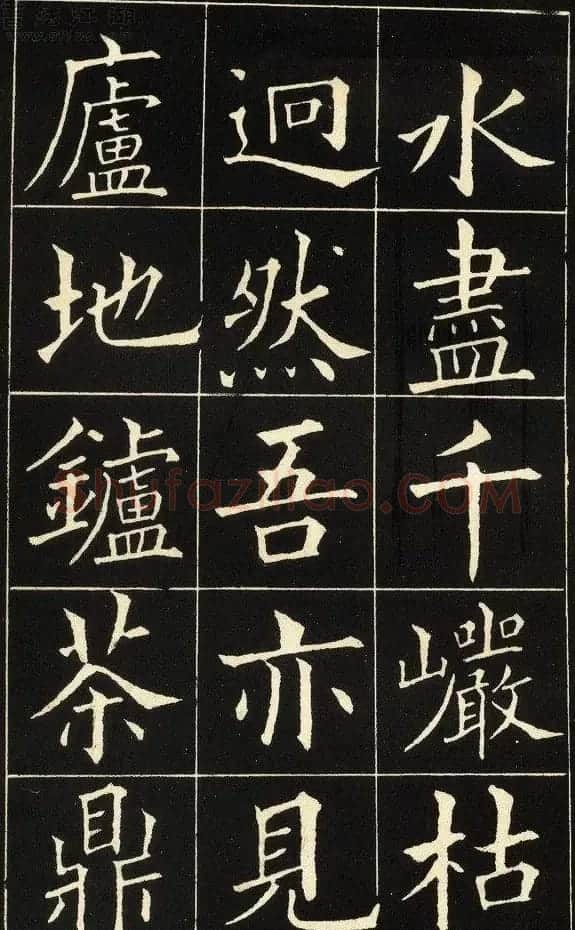 水盡千巖枯
迥然吾亦見
廬地鑪茶鼎
Shufaziliao.COM